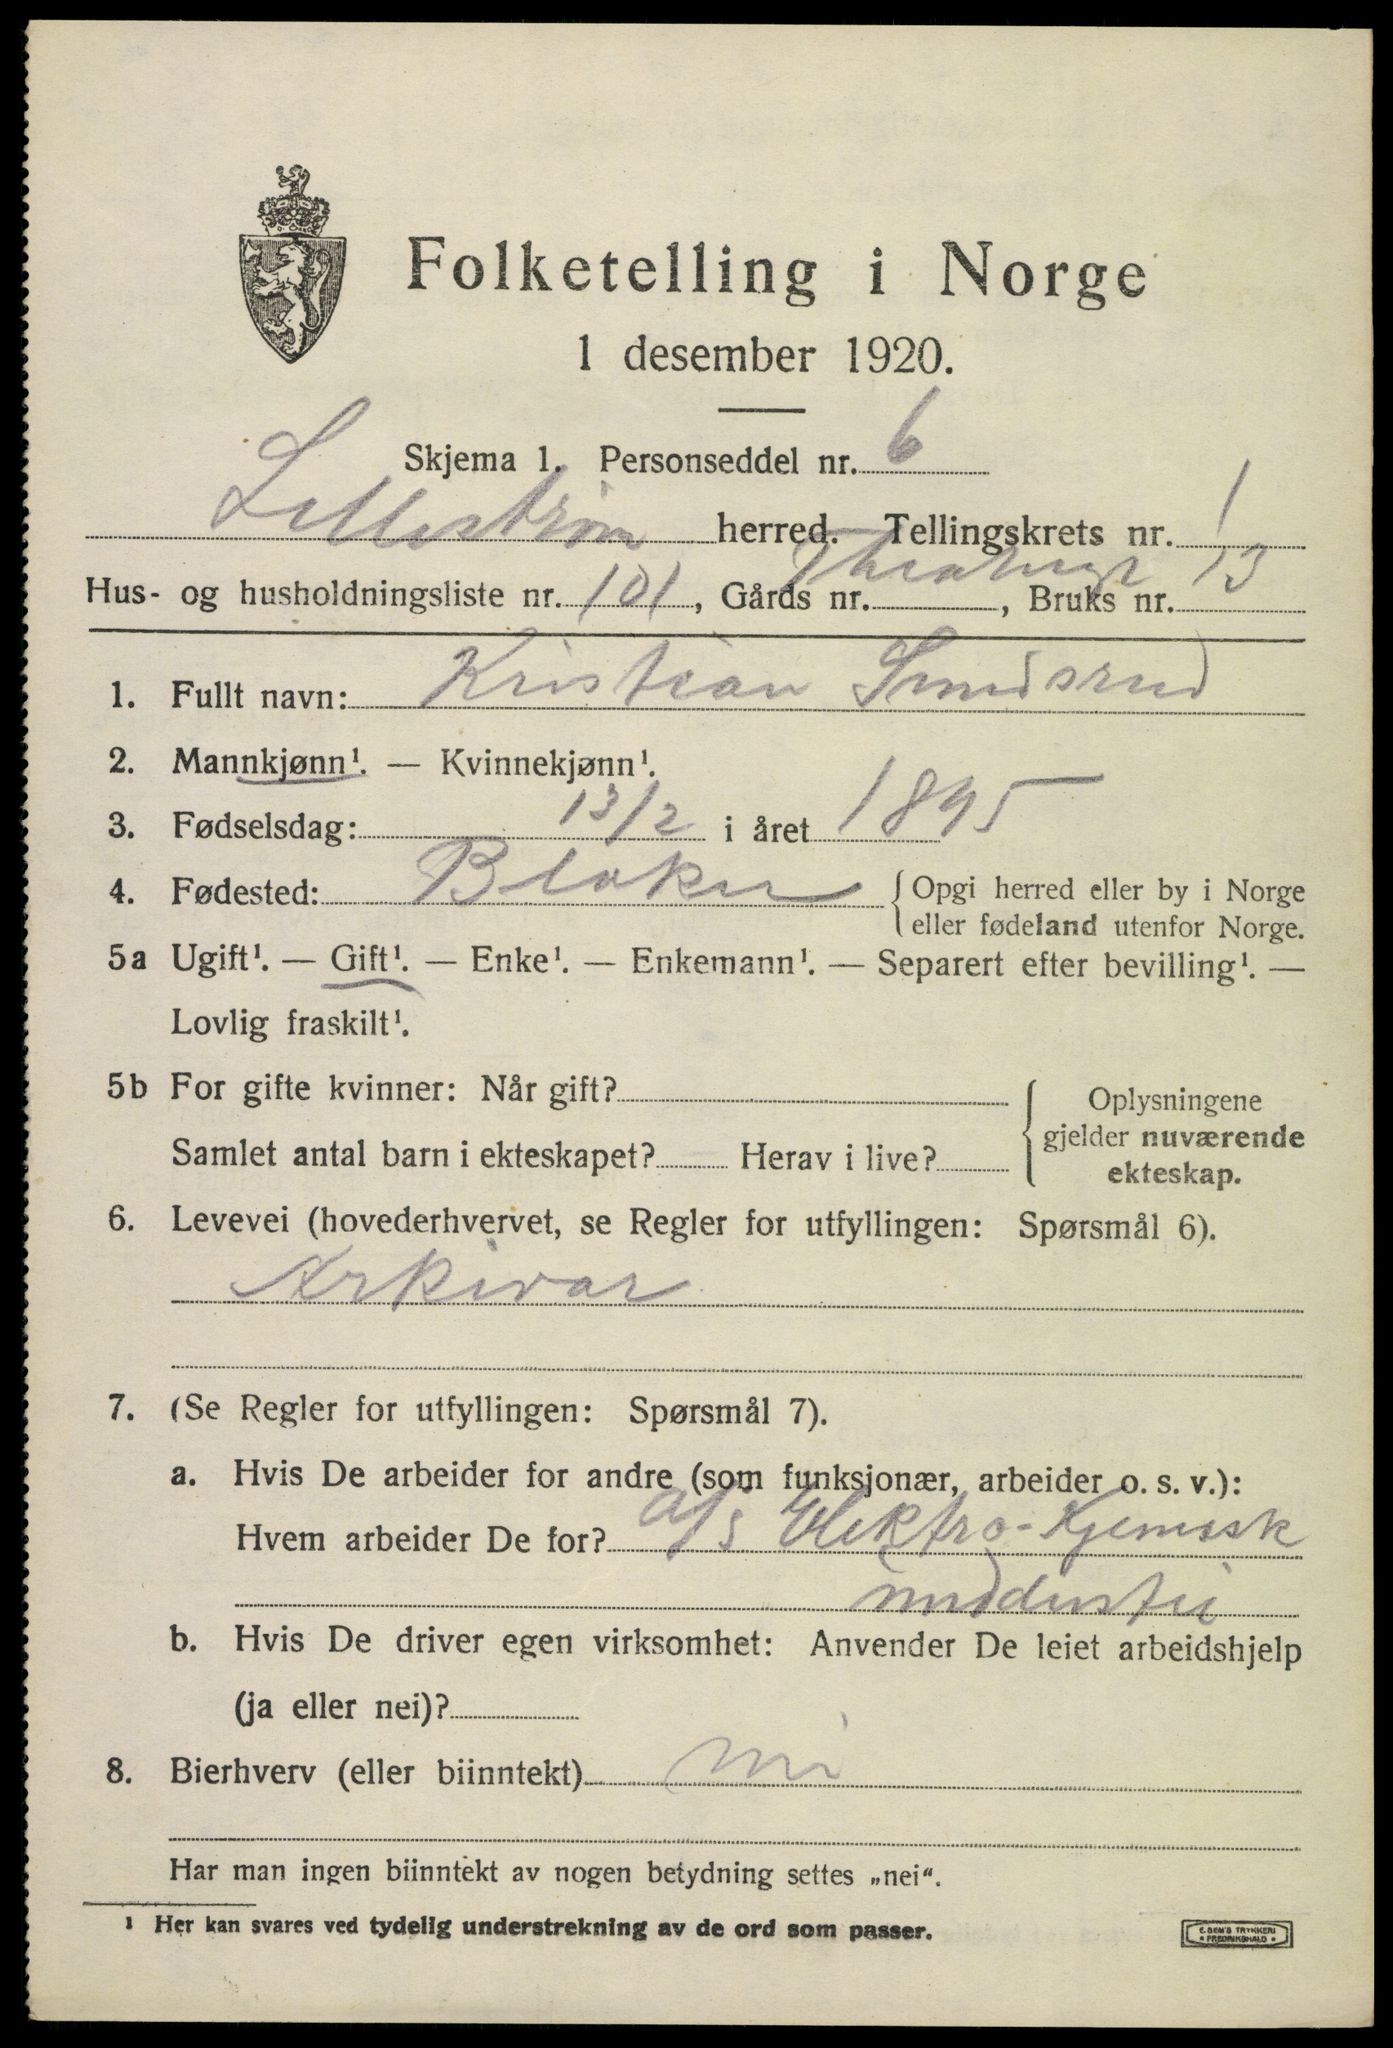 Folketelling i Norge
1 desember 1920.
Skjema 1. Personseddel nr. 6
Lillestrøm herred. Tellingskrets nr. 1
Hus- og husholdningsliste nr. 101, Gårds nr. , Bruks nr. 13
1. Fullt navn: Kristian Smedsrud
2. Mannkjønn¹. — Kvinnekjønn¹.
3. Fødselsdag: 13/2 i året 1895
4. Fødested: Blaker {Opgi herred eller by i Norge
eller fødeland utenfor Norge.
5a Ugift¹. — Gift¹. — Enke¹. — Enkemann¹. — Separert efter bevilling¹. —
Lovlig fraskilt¹.
5b For gifte kvinner: Når gift?
Samlet antal barn i ekteskapet? Herav i live?
Oplysningene
gjelder nuværende
ekteskap.
6. Levevei (hovederhvervet, se Regler for utfyllingen: Spørsmål 6).
Arkivar
7. (Se Regler for utfyllingen: Spørsmål 7).
a. Hvis De arbeider for andre (som funksjonær, arbeider o. s. v.):
Hvem arbeider De for? A/S Elektro-Kjemisk
inndustri
b. Hvis De driver egen virksomhet: Anvender De leiet arbeidshjelp
(ja eller nei)?
8. Bierhverv (eller biinntekt) nei
Har man ingen biinntekt av nogen betydning settes „nei“.
¹ Her kan svares ved tydelig understrekning av de ord som passer.
E. SEM'S TRYKKERI
* FREDRIKSHALD *